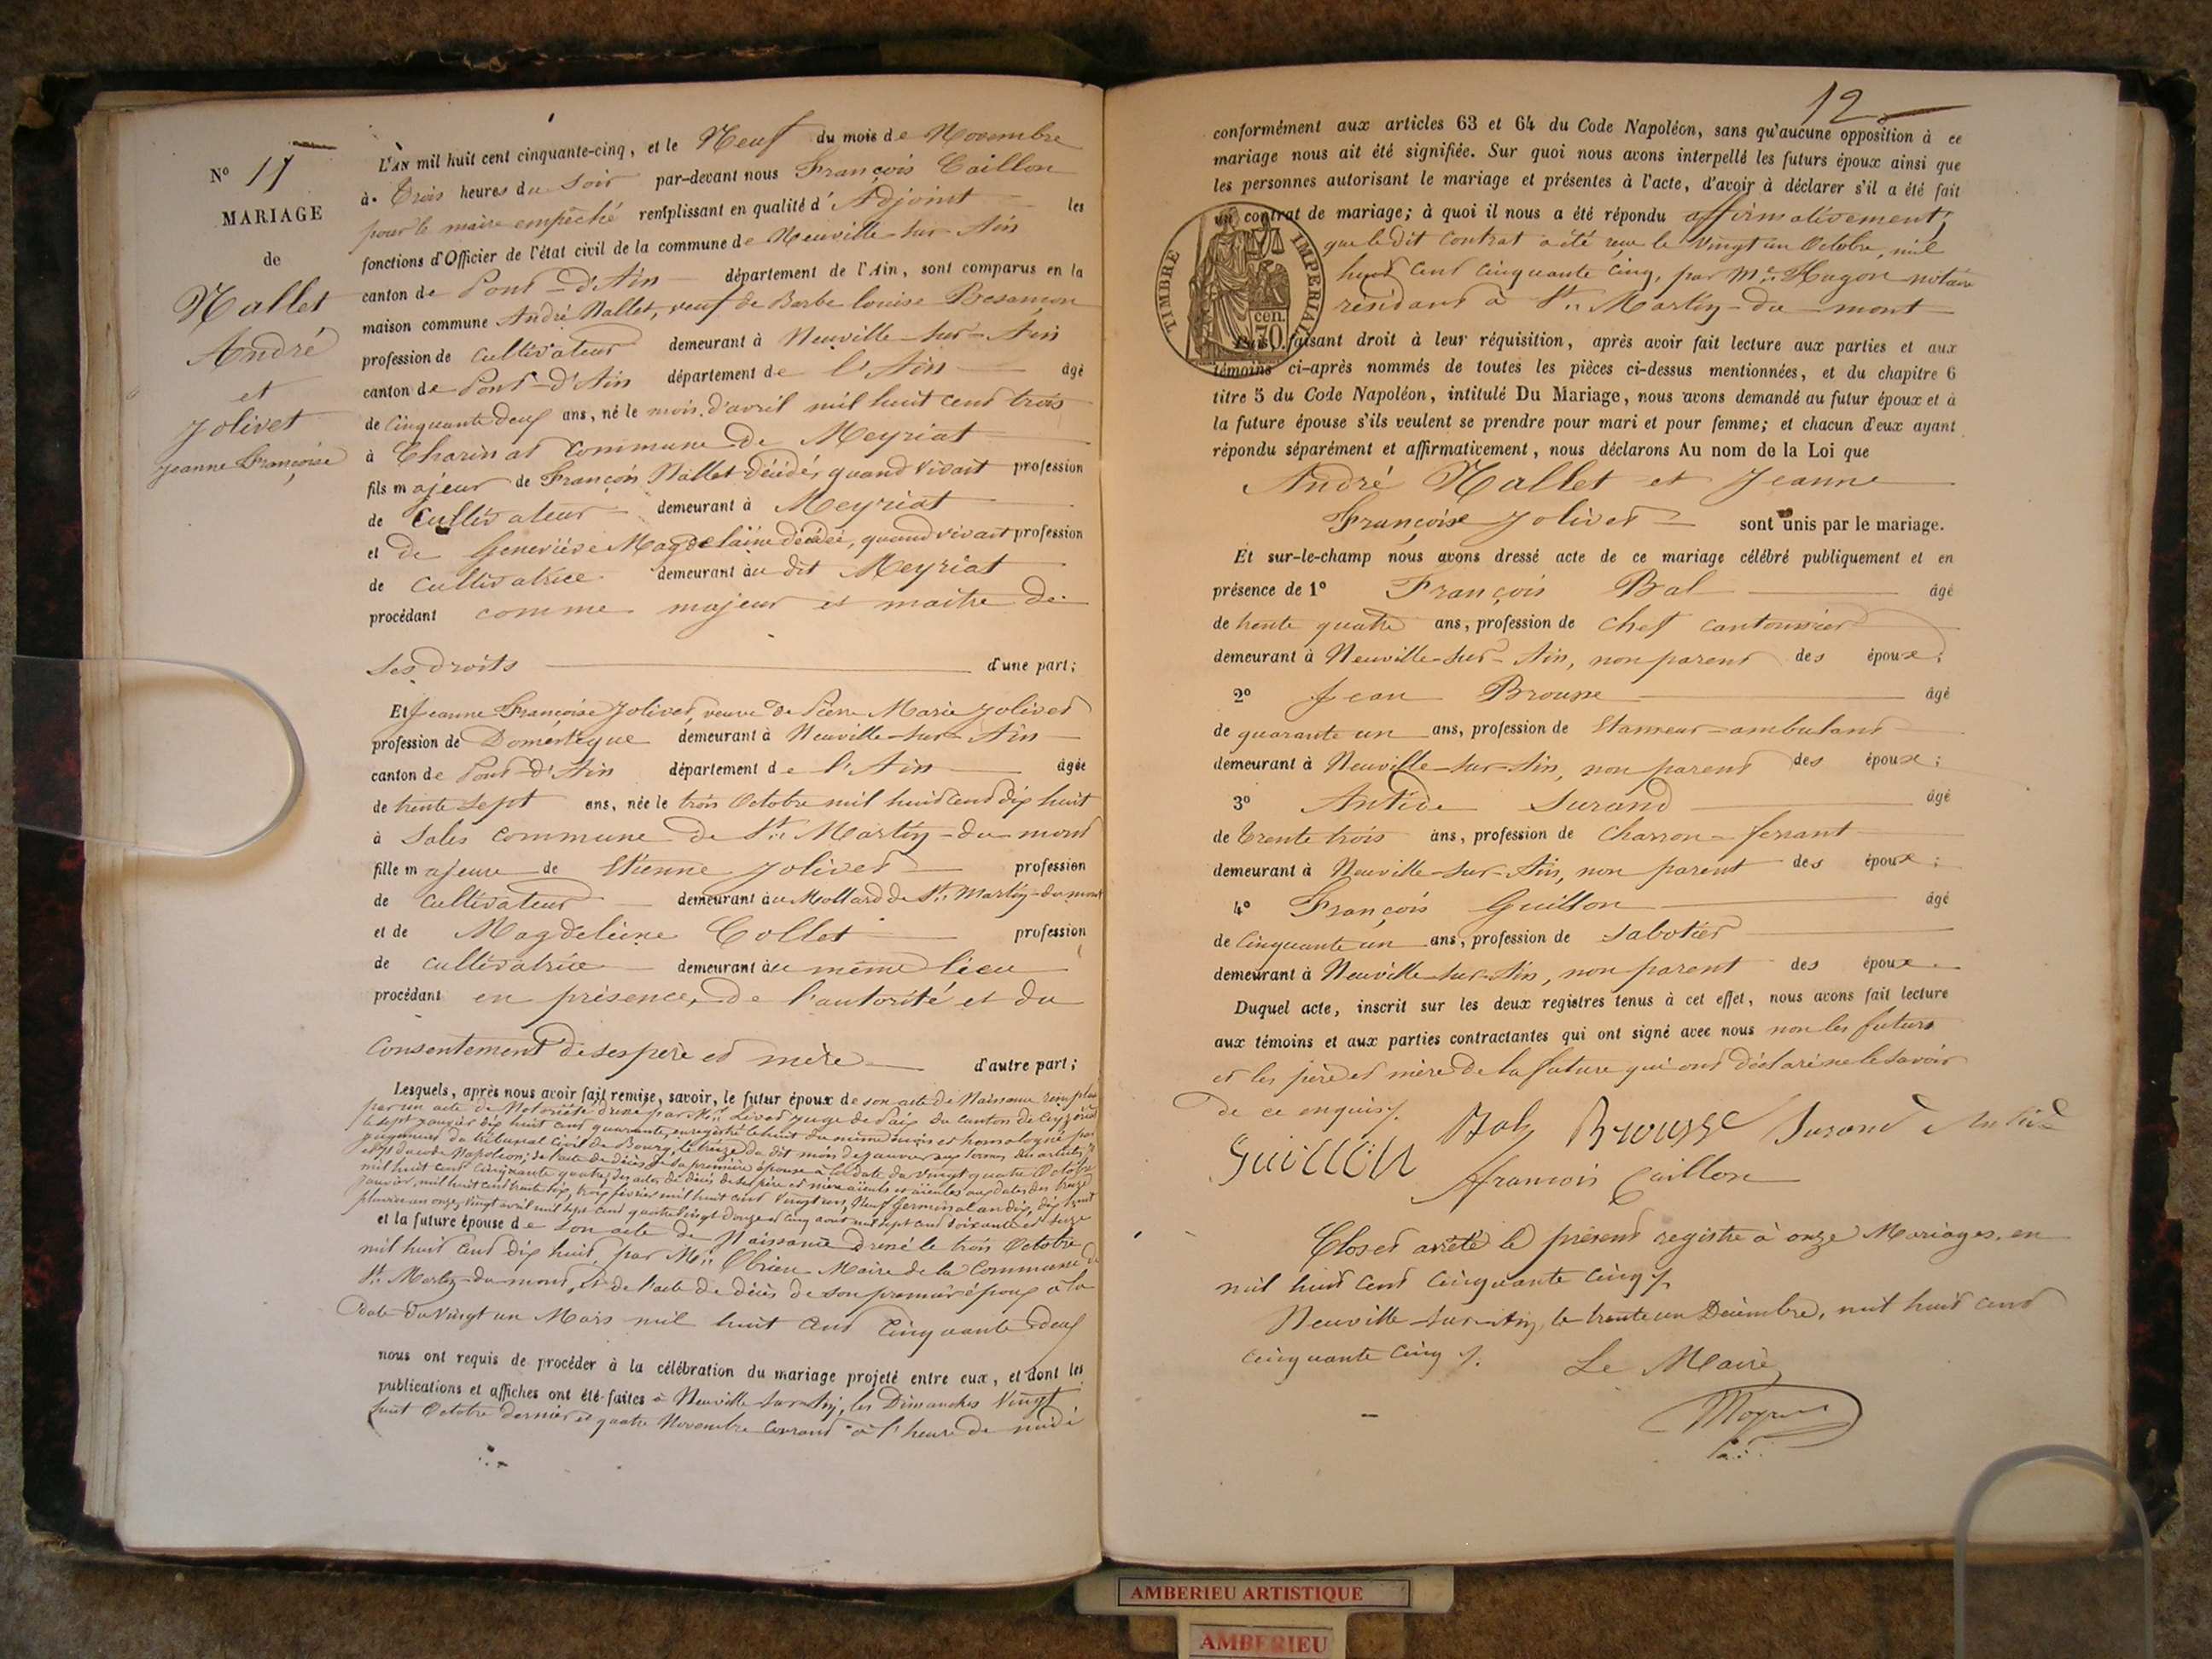 N° 11
MARIAGE
de
Nallet
André
et
Jolivet
Jeanne Françoise
L'AN mil huit cent cinquante-cinq, et le Neuf du mois de Novembre
à Trois heures du Soir par-devant nous François Caillon
pour le maire empêché remplissant en qualité d'Adjoint les
fonctions d'Officier de l'état civil de la commune de Neuville-sur-Ain
canton de Pont-d'Ain département de l'Ain, sont comparus en la
maison commune André Nallet, veuf de Barbe Louise Besançon
profession de Cultivateur demeurant à Neuville-sur-Ain
canton de Pont-d'Ain département de l'Ain âgé
de Cinquante deux ans, né le mois d'avril mil huit cent trois
à Charinat Commune de Meyriat
fils majeur de François Nallet décédé, quand vivait profession
de Cultivateur demeurant à Meyriat
et de Geneviève Magdelaine décédée, quand vivait profession
de Cultivatrice demeurant au dit Meyriat
procédant comme majeur et maître de
ses droits d'une part;
Et Jeanne Françoise Jolivet, veuve de Pierre Marie Jolivet
profession de Domestique demeurant à Neuville-sur-Ain
canton de Pont-d'Ain département de l'Ain âgée
de trente sept ans, née le trois Octobre mil huit cent dix huit
à Salles commune de St. Martin-du-mont
fille majeure de Etienne Jolivet profession
de Cultivateur demeurant au Mollard de St. Martin-du-mont
et de Magdeleine Collet profession
de cultivatrice demeurant au même lieu
procédant en présence, de l'autorité et du
Consentement de ses père et mère d'autre part;
Lesquels, après nous avoir fait remise, savoir, le futur époux de son acte de Naissance remplacé
par un acte de Notoriété dressé par juge de Paix du Canton de Ceyzériat
le sept janvier dix huit cent quarante, enregistré le huit du même mois et homologué par
jugement du tribunal Civil de Bourg, le treize du dit mois de janvier aux termes des articles
et du code Napoléon; de l'acte de décès de sa première épouse à la date du vingt quatre Octobre
mil huit cent Cinquante quatre; des actes de décès de ses père et mère aïeuls et aïeules aux dates des treize
janvier, mil huit cent trente six, trois février mil huit cent vingt un, Neuf Germinal an dix, dix huit
pluviose an onze, Vingt avril mil sept cent quatre vingt douze et Cinq aout mil sept cent soixante et seize
et la future épouse de son acte de Naissance dressé le trois Octobre
mil huit cent dix huit, par Mr. Obrien Maire de la Commune de
St. Martin-du-mont, et de l'acte de décès de son premier époux à la
date du Vingt un Mars mil huit cent Cinquante deux
nous ont requis de procéder à la célébration du mariage projeté entre eux, et dont les
publications et affiches ont été faites à Neuville-sur-Ain, les Dimanches Vingt
huit Octobre dernier et quatre Novembre courant à l'heure de midi
12
conformément aux articles 63 et 64 du Code Napoléon, sans qu'aucune opposition à ce
mariage nous ait été signifiée. Sur quoi nous avons interpellé les futurs époux ainsi que
les personnes autorisant le mariage et présentes à l'acte, d'avoir à déclarer s'il a été fait
un contrat de mariage; à quoi il nous a été répondu affirmativement,
que le dit Contrat a été reçu le Vingt un Octobre, mil
huit Cent Cinquante Cinq, par Me. Hugon notaire
résidant à St. Martin-du-mont
TIMBRE IMPERIAL
cen. 70
Puis, faisant droit à leur réquisition, après avoir fait lecture aux parties et aux
témoins ci-après nommés de toutes les pièces ci-dessus mentionnées, et du chapitre 6
titre 5 du Code Napoléon, intitulé Du Mariage, nous avons demandé au futur époux et à
la future épouse s'ils veulent se prendre pour mari et pour femme; et chacun d'eux ayant
répondu séparément et affirmativement, nous déclarons Au nom de la Loi que
André Nallet et Jeanne
Françoise Jolivet sont unis par le mariage.
Et sur-le-champ nous avons dressé acte de ce mariage célébré publiquement et en
présence de 1° François Bal âgé
de trente quatre ans, profession de Chef cantonnier
demeurant à Neuville-sur-Ain, non parent des époux;
2° Jean Brousse âgé
de quarante un ans, profession de Etameur-ambulant
demeurant à Neuville-sur-Ain, non parent des époux;
3° Antide Surand âgé
de Trente trois ans, profession de Charron-ferrant
demeurant à Neuville-sur-Ain, non parent des époux;
4° François Guillon âgé
de Cinquante un ans, profession de Sabotier
demeurant à Neuville-sur-Ain, non parent des époux.
Duquel acte, inscrit sur les deux registres tenus à cet effet, nous avons fait lecture
aux témoins et aux parties contractantes qui ont signé avec nous non les futurs
et les père et mère de la future qui ont déclaré ne le savoir
de ce enquis.
Guillon Bal Brousse Surand Antide
francois Caillon
Clos et arrêté le présent registre à onze Mariages, en
mil huit cent Cinquante Cinq
Neuville-sur-Ain, le trente un Décembre, mil huit cent
Cinquante Cinq.
Le Maire
AMBERIEU ARTISTIQUE
AMBERIEU